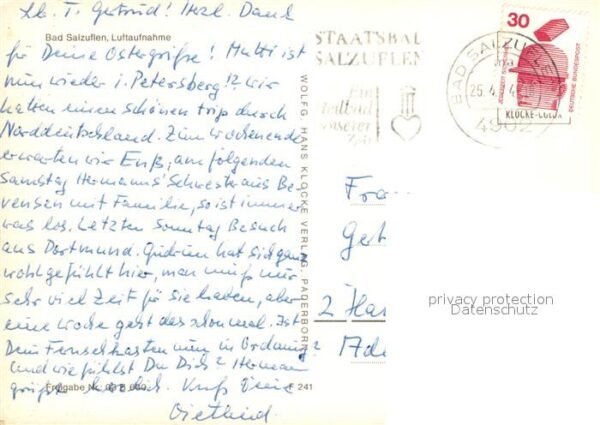 Lb. T. Gertrud! Herzl. Dank
Bad Salzuflen, Luftaufnahme
für Deine Ostergrüße! Mutti ist
nun wieder i. Petersberg!? Wir
hatten einen schönen trip durch
Norddeutschland. Zum Wochenende
erwarten wir Euß, am folgenden
Samstag Hermanns' Schwester aus Be-
vensen mit Familie, so ist immer
was los. Letzten Sonntag Besuch
aus Dortmund. Gudrun hat sich ganz
wohlgefühlt hier, man muß nur
sehr viel Zeit für sie haben, aber
eine Woche geht das schon mal. Ist
Dein Fernsehkasten nun in Ordnung?
Und wie fühlst Du Dich? Hermann
grüßt herzlich. Kuß Deine
Freigabe Nr.
F 241
WOLFG. HANS KLOCKE VERLAG, PADERBORN
STAATSBAD
SALZUFLEN
Ein
Heilbad
unserer
Zeit
BAD SALZUFLEN
25.4.
4902
30
JEDERZEIT SICHERHEIT
DEUTSCHE BUNDESPOST
KLOCKE-COLOR
Fra
Get
2 Ha
privacy protection
Datenschutz